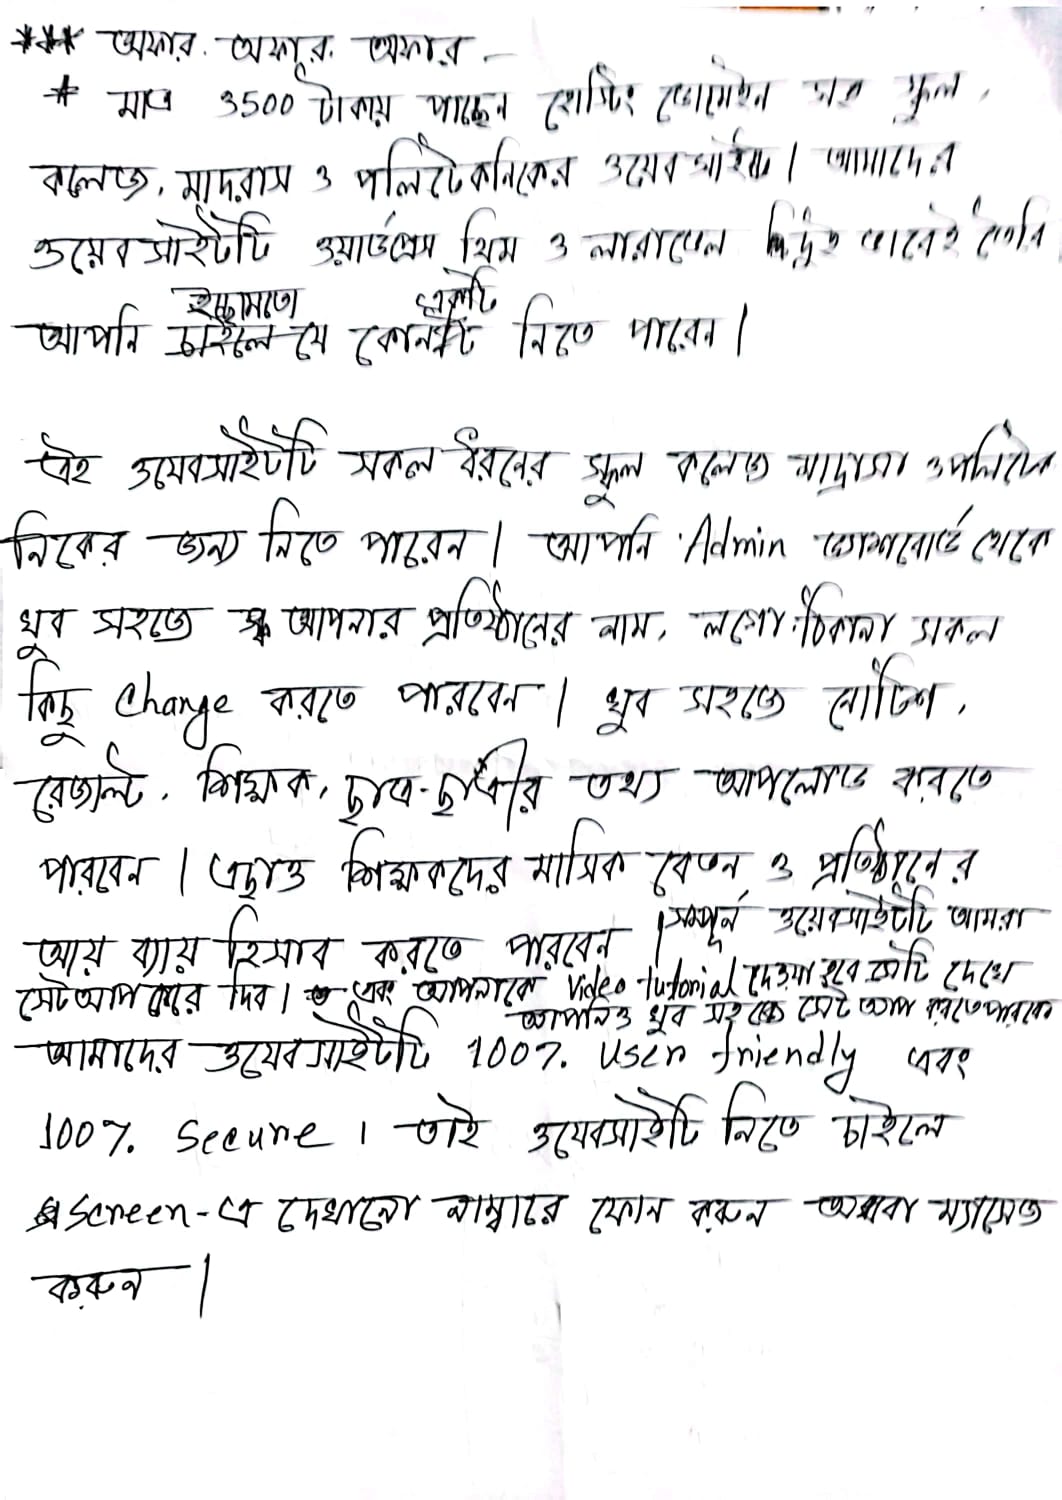 *** অফার. অফার. অফার
* মাত্র 3500 টাকায় পাচ্ছেন হোস্টিং ডোমেইন সহ স্কুল,
কলেজ, মাদরাসা ও পলিটেকনিকের ওয়েবসাইট। আমাদের
ওয়েবসাইটটি ওয়ার্ডপ্রেস থিম ও লারাভেল দুই ভাবেই তৈরি
ইচ্ছামতো একটি
আপনি চাইলে যে কোনটি নিতে পারেন।
এই ওয়েবসাইটটি সকল ধরনের স্কুল কলেজ মাদ্রাসা ও পলিটেক
নিকের জন্য নিতে পারেন। আপনি Admin ড্যাশবোর্ড থেকে
খুব সহজে আপনার প্রতিষ্ঠানের নাম, লগো, ঠিকানা সকল
কিছু Change করতে পারবেন। খুব সহজে নোটিশ,
রেজাল্ট, শিক্ষক, ছাত্র-ছাত্রীর তথ্য আপলোড করতে
পারবেন। এছাড়াও শিক্ষকদের মাসিক বেতন ও প্রতিষ্ঠানের
আয় ব্যায় হিসাব করতে পারবেন। সম্পূর্ন ওয়েবসাইটটি আমরা
সেটআপ করে দিব। এবং আপনাকে Video tutorial দেওয়া হবে সেটি দেখে
আপনিও খুব সহজে সেট আপ করতে পারবেন
আমাদের ওয়েবসাইটটি 100% User friendly এবং
100% Secure। তাই ওয়েবসাইটি নিতে চাইলে
Screen-এ দেখানো নাম্বারে ফোন করুন অথবা ম্যাসেজ
করুন।